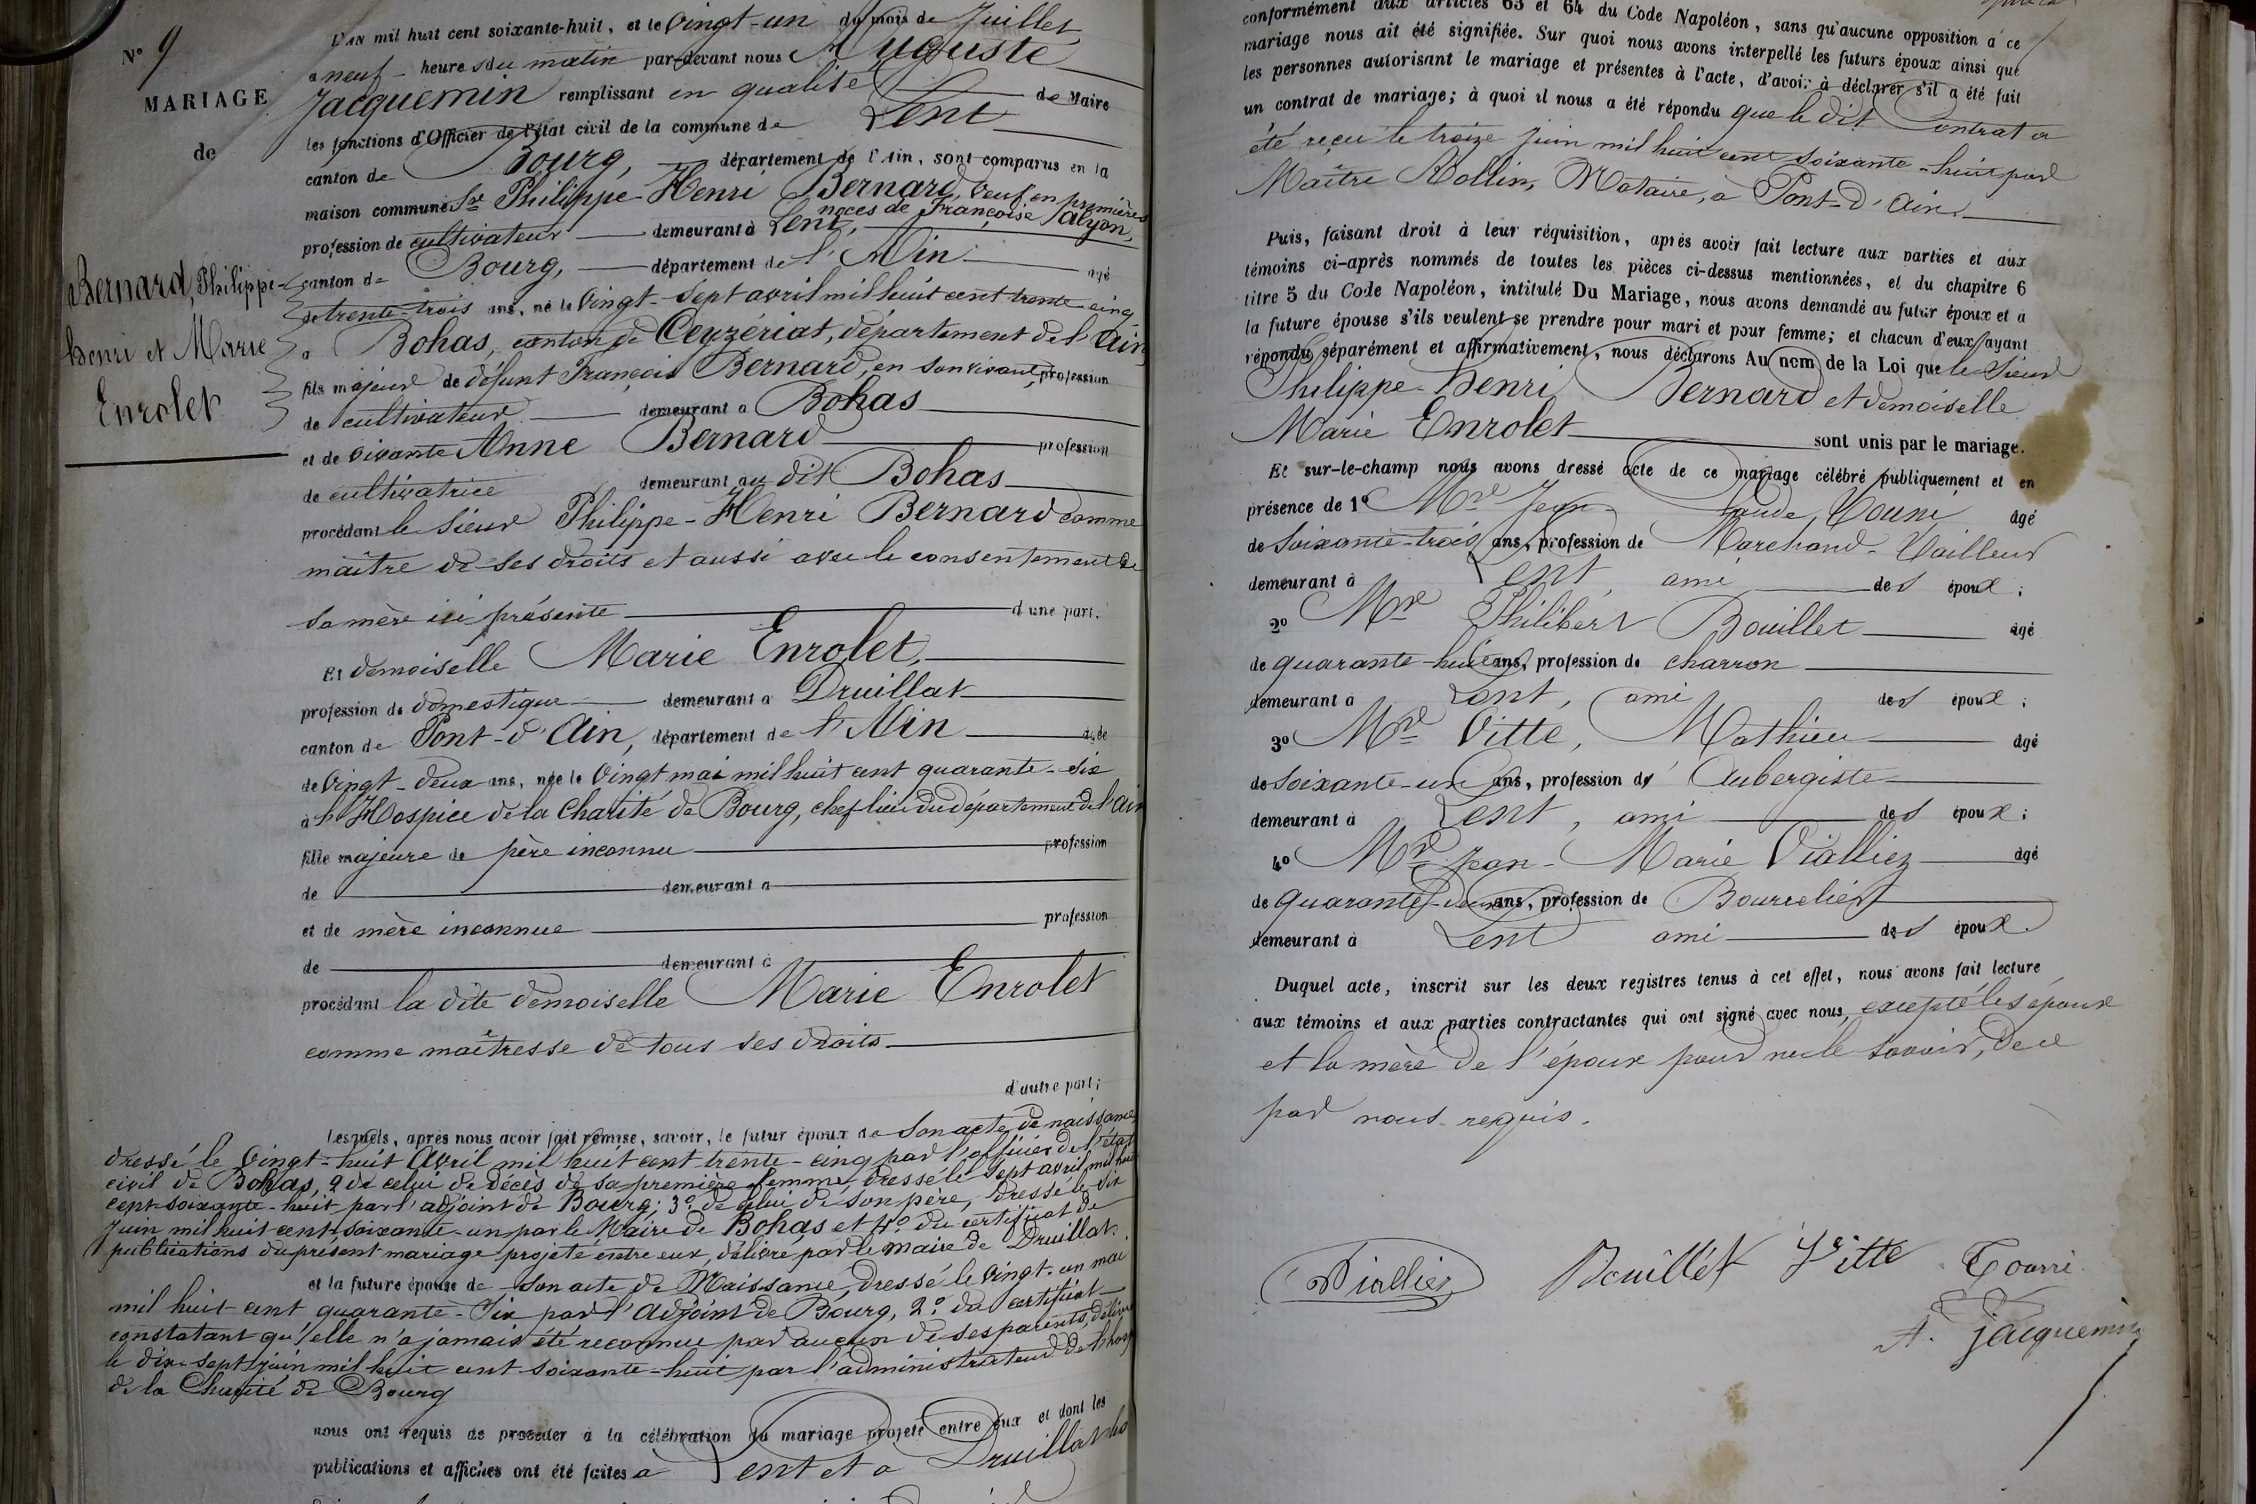 N° 9
MARIAGE
de
Bernard, Philippe-
henri et Marie
Enrolet
L'AN mil huit cent soixante-huit, et le Vingt-un du mois de Juillet
a neuf heures du matin par-devant nous Auguste
Jacquemin remplissant en qualité de Maire
les fonctions d'Officier de l'état civil de la commune de Lent
canton de Bourg, département de l'Ain, sont comparus en la
maison commune Sr Philippe-Henri Bernard, Veuf en premières
noces de Françoise Salyon,
profession de cultivateur demeurant à Lent,
canton de Bourg, département de l'Ain âgé
de trente-trois ans, né le Vingt-sept avril mil huit cent trente cinq
a Bohas, canton de Ceyzériat, département de l'Ain
fils majeur de défunt François Bernard, en son vivant, profession
de cultivateur demeurant a Bohas
et de vivante Anne Bernard profession
de cultivatrice demeurant au dit Bohas
procédant le sieur Philippe-Henri Bernard comme
maître de ses droits et aussi avec le consentement de
sa mère ici présente d'une part.
Et demoiselle Marie Enrolet,
profession de domestique demeurant a Druillat
canton de Pont-d'Ain, département de l'Ain âgée
de Vingt-deux ans, née le Vingt mai mil huit cent quarante-six
à l'Hospice de la Charité de Bourg, chef lieu du département de l'Ain
fille majeure de père inconnu profession
de demeurant a
et de mère inconnue profession
de demeurant à
procédant la dite demoiselle Marie Enrolet
comme maîtresse de tous ses droits
d'autre part;
Lesquels, après nous avoir fait remise, savoir, le futur époux de son acte de naissance
dressé le Vingt-huit Avril mil huit cent trente-cinq par l'officier de l'état
civil de Bohas, 2° de celui de décès de sa première femme, dressé le sept avril mil huit
cent soixante-huit par l'adjoint de Bourg; 3° de celui de son père, dressé le dix
Juin mil huit cent soixante-un par le Maire de Bohas et 4° du certificat de
publications du présent mariage projeté entre eux, délivré par le maire de Druillat.
et la future épouse de son acte de Naissance, dressé le Vingt-un mai
mil huit cent quarante-Six par l'Adjoint de Bourg, 2° du certificat
constatant qu'elle n'a jamais été reconnue par aucun de ses parents, délivré
le dix-sept juin mil huit cent soixante-huit par l'administrateur de l'hosp
de la Charité de Bourg
nous ont requis de procéder à la célébration du mariage projeté entre eux et dont les
publications et affiches ont été faites a Lent et a Druillat
conformément aux articles 63 et 64 du Code Napoléon, sans qu'aucune opposition à ce
mariage nous ait été signifiée. Sur quoi nous avons interpellé les futurs époux ainsi que
les personnes autorisant le mariage et présentes à l'acte, d'avoir à déclarer s'il a été fait
un contrat de mariage; à quoi il nous a été répondu que le dit Contrat a
été reçu le treize Juin mil huit cent soixante-huit par
Maître Rollin, Notaire, à Pont-d'Ain.
Puis, faisant droit à leur réquisition, après avoir fait lecture aux parties et aux
témoins ci-après nommés de toutes les pièces ci-dessus mentionnées, et du chapitre 6
titre 5 du Code Napoléon, intitulé Du Mariage, nous avons demandé au futur époux et a
la future épouse s'ils veulent se prendre pour mari et pour femme; et chacun d'eux ayant
répondu séparément et affirmativement, nous déclarons Au nom de la Loi que le Sieur
Philippe-Henri Bernard et demoiselle
Marie Enrolet sont unis par le mariage.
Et sur-le-champ nous avons dressé acte de ce mariage célébré publiquement et en
présence de 1° Mr Jean-Claude, Touni âgé
de soixante-trois ans, profession de Marchand-Tailleur
demeurant à Lent, ami des époux;
2° Mr Philibert Bouillet âgé
de quarante-huit ans, profession de charron
demeurant à Lent, ami des époux;
3° Mr Vitte, Mathieu âgé
de soixante-un ans, profession d' Aubergiste
demeurant à Lent, ami des époux;
4° Mr Jean-Marie Vialliez âgé
de quarante-deux ans, profession de Bourrelier
demeurant à Lent ami des époux.
Duquel acte, inscrit sur les deux registres tenus à cet effet, nous avons fait lecture
aux témoins et aux parties contractantes qui ont signé avec nous, excepté les époux
et la mère de l'époux pour ne le savoir, de ce
par nous requis.
Viallier Bouillet Vitte Tourni
A. Jacquemin